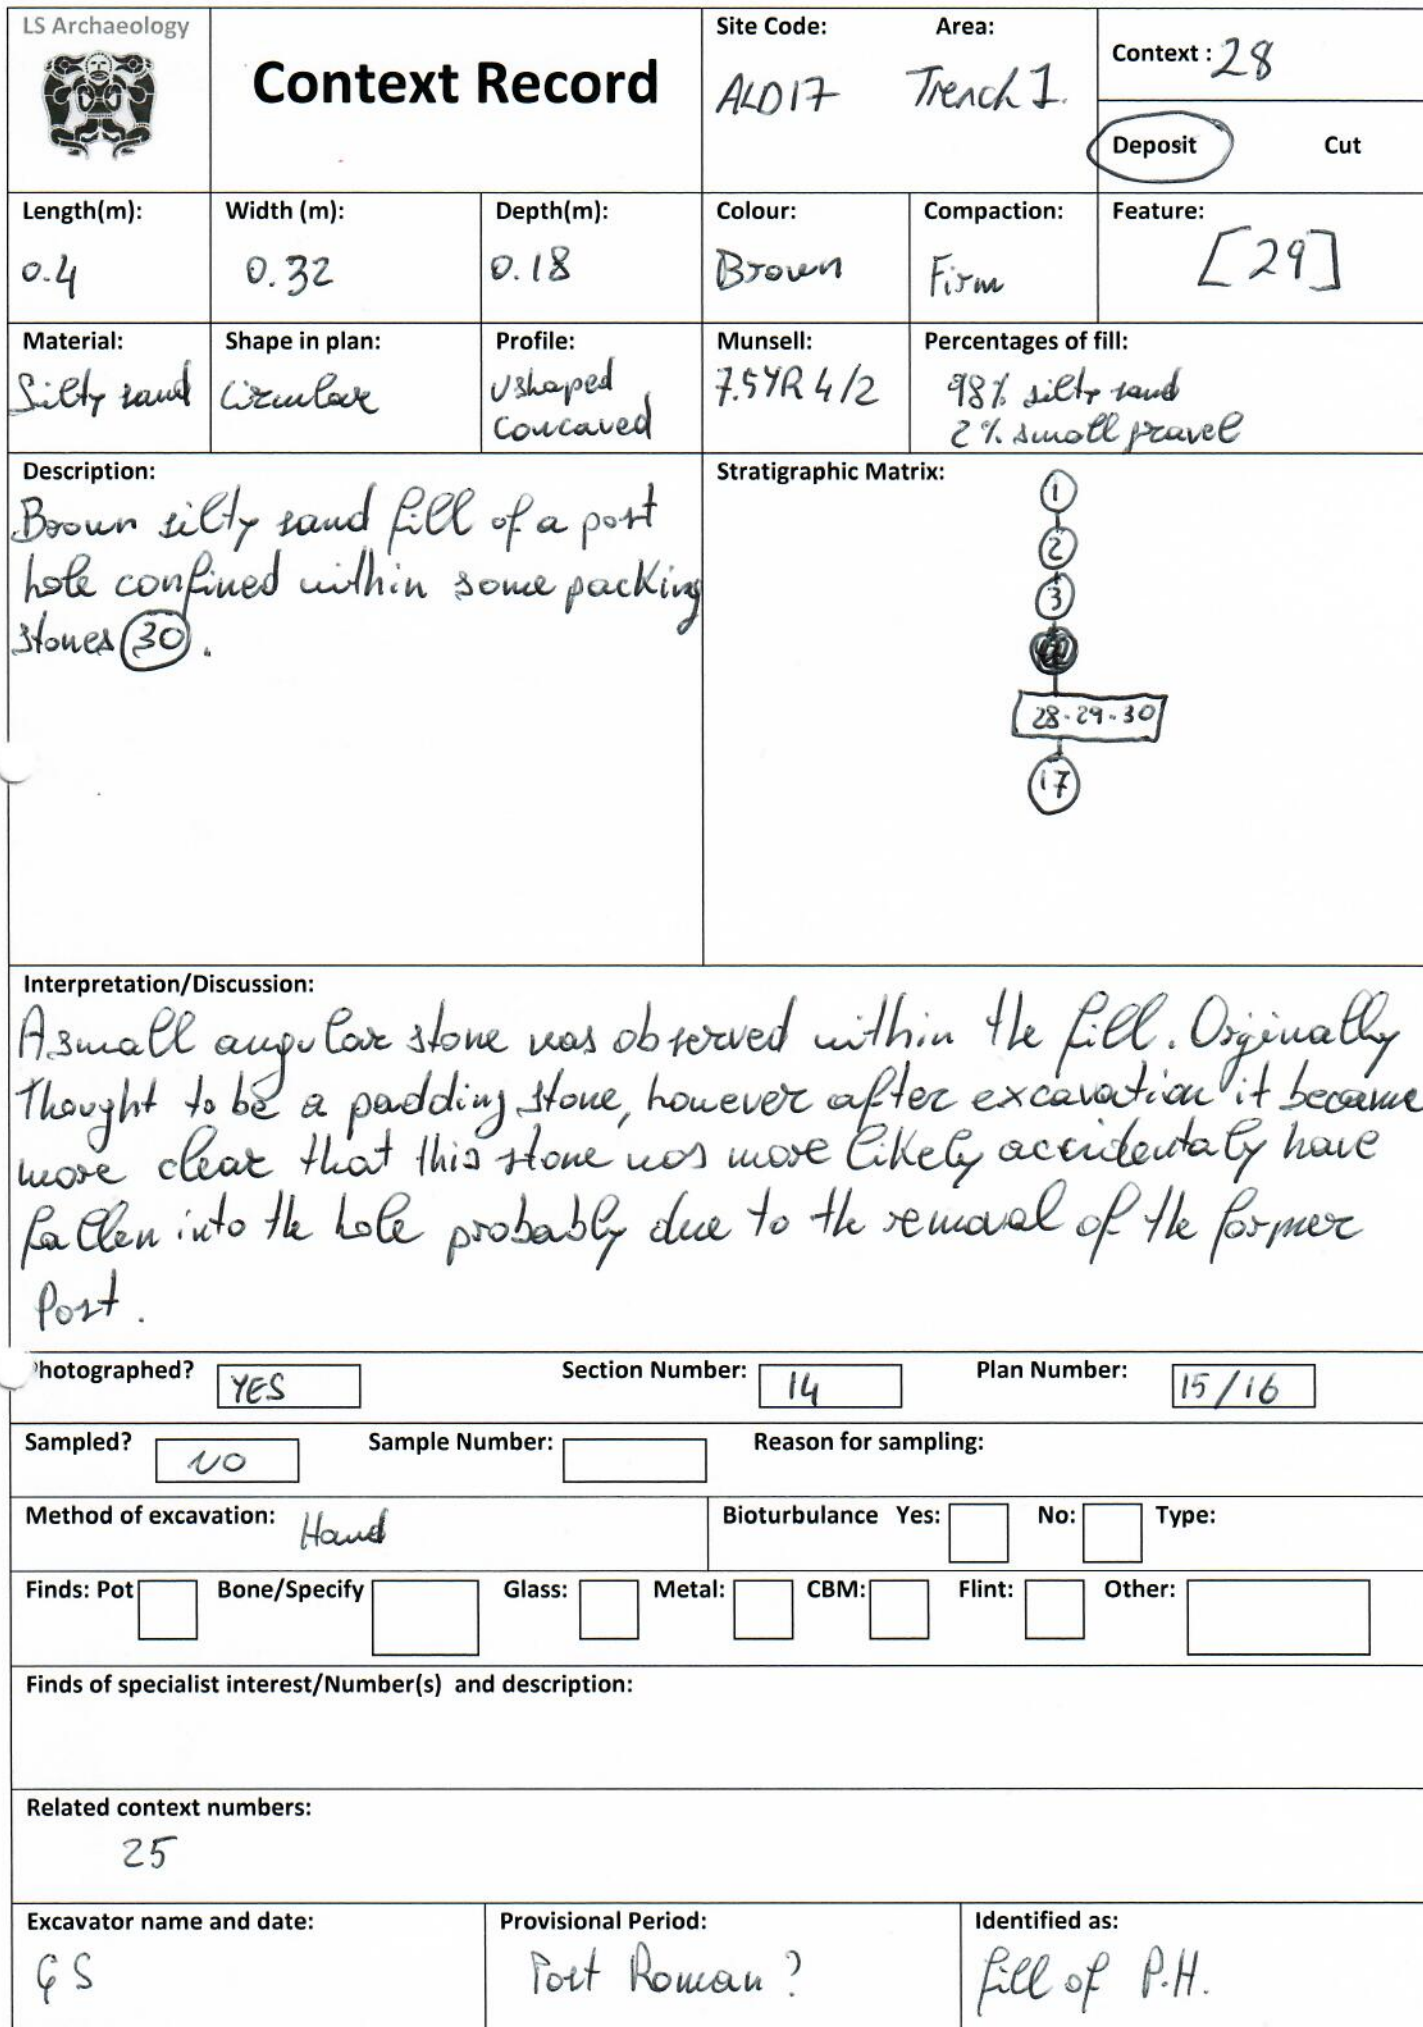 LS Archaeology
Context Record
Site Code: Area:
ALD17 Trench 1.
Context : 28
Deposit Cut
Length(m): Width (m): Depth(m): Colour: Compaction: Feature:
0.4 0.32 0.18 Brown Firm [29]
Material: Shape in plan: Profile: Munsell: Percentages of fill:
Silty sand Circular Ushaped 7.5YR 4/2 98% silty sand
concaved 2% small gravel
Description:
Brown silty sand fill of a post
hole confined within some packing
stones 30.
Stratigraphic Matrix:
1
2
3
28-29-30
17
Interpretation/Discussion:
A small angular stone was observed within the fill. Originally
thought to be a padding stone, however after excavation it became
more clear that this stone was more likely accidentaly have
fallen into the hole probably due to the removal of the former
Post.
Photographed? YES Section Number: 14 Plan Number: 15/16
Sampled? NO Sample Number: Reason for sampling:
Method of excavation: Hand Bioturbulance Yes: No: Type:
Finds: Pot Bone/Specify Glass: Metal: CBM: Flint: Other:
Finds of specialist interest/Number(s) and description:
Related context numbers:
25
Excavator name and date: Provisional Period: Identified as:
GS Post Roman? fill of P.H.